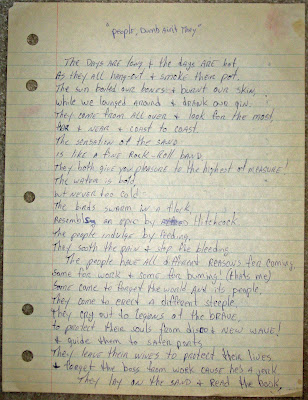 "people, Dumb Aint They"
The Days are long & the days are hot,
As they all hang-out & smoke their pot.
The sun boiled our bones & burnt our skin,
while we lounged around & drank our gin.
They come from all over & look for the most,
& near & coast to coast.
The sensation of the sand
is like a fine Rock-Roll band
They both give you pleasure to the highest of measure!
The water is bold,
but never too cold
The birds swarm in a flock,
Resembling an epic by Hitchcock
The people indulge by feeding,
They sooth the pain & stop the bleeding
The people have all different reasons for coming,
Some for work & some for bumming! (thats me)
Some come to forget the world and its people,
They come to erect a different steeple
They cry out to legions of the brave,
to protect their souls from disco & new wave!
& guide them to safer ports
They leave their wives to protect their lives
& forget the boss from work cause he's a jerk
They lay on the sand & read the book,